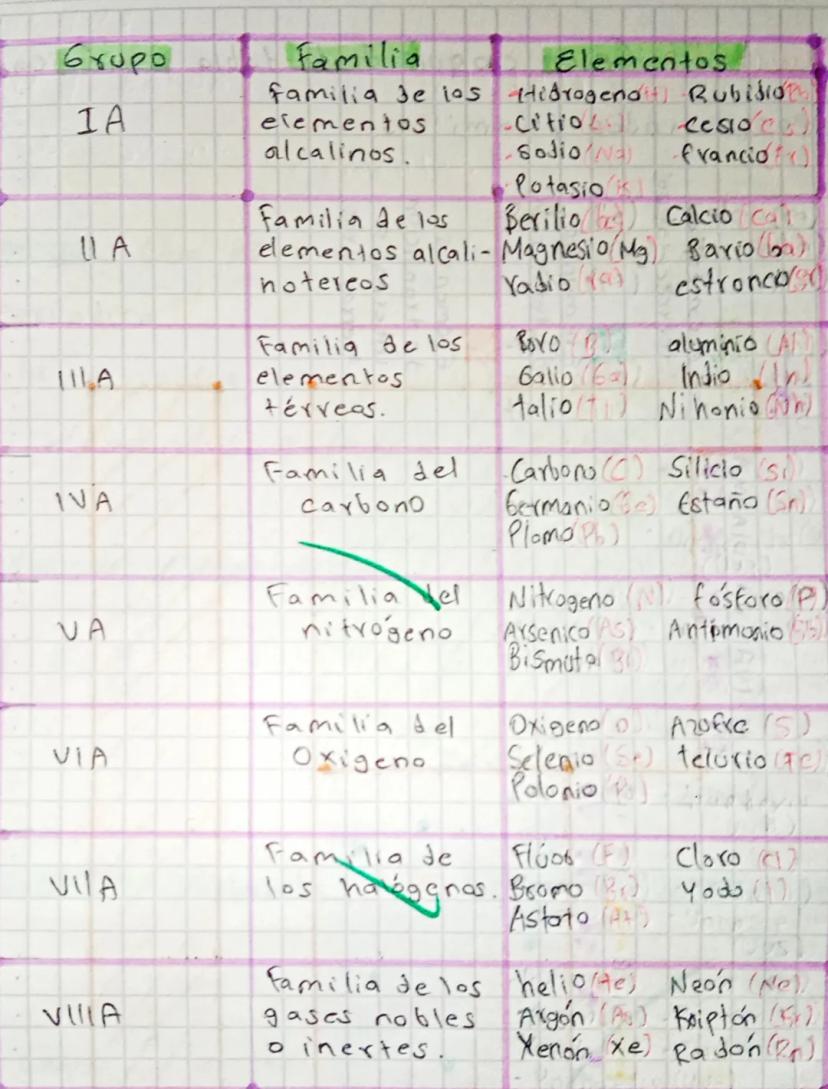 Grupo Familia Elementos
IA
familia de los
elementos
alcalinos.
-Hidrogeno(H) -Rubidio(Rb)
-Litio(Li) -cesio(Cs)
-Sodio(Na) -francio(Fr)
-Potasio(K)
II A
Familia de los
elementos alcali-
notereos
Berilio(be) Calcio(Ca)
Magnesio(Mg) Bario(ba)
radio(ra) estroncio(Sr)
III.A
Familia de los
elementos
térreas.
Boro(B) aluminio(Al)
Galio(Ga) Indio(In)
talio(Tl) Nihonio(Nh)
IVA
Familia del
carbono
-Carbono(C) Silicio(Si)
Germanio(Ge) Estaño(Sn)
Plomo(Pb)
VA
Familia del
nitrógeno
Nitrogeno(N) fósforo(P)
Arsenico(As) Antimonio(Sb)
Bismuto(Bi)
VIA
Familia del
Oxigeno
Oxigeno(O) Azofre(S)
Selenio(Se) telurio(Te)
Polonio(Po)
VIIA
Familia de
los halógenos.
Flúor(F) Cloro(Cl)
Bromo(Br) Yodo(I)
Astato(At)
VIIIA
Familia de los
gases nobles
o inertes.
helio(He) Neón(Ne)
Argón(Ar) Kriptón(Kr)
Xenón(Xe) Radón(Rn)